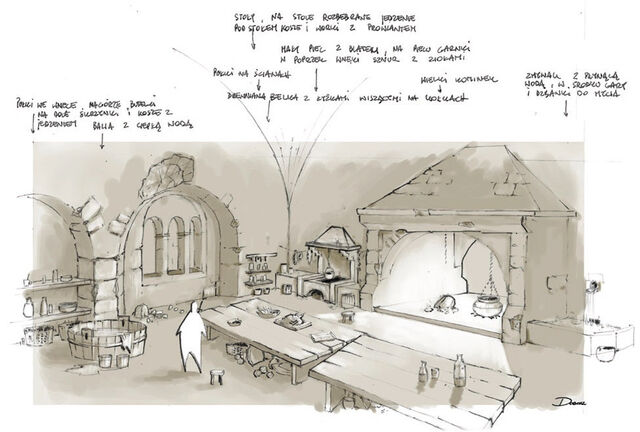 STOŁY, NA STOLE ROZGRZEBANE JEDZENIE
POD STOŁEM KOSZE I WORKI Z PROWIANTEM
MAŁY PIEC Z BLATEM, NA PIECU GARNKI
W POPRZEK WNĘKI SZNUR Z ZIOŁAMI
PÓŁKI NA ŚCIANACH
WIELKI KOMINEK
DREWNIANA BELKA Z WISZĄCYMI NA HAKACH
PÓŁKI WE WNĘCE, NA GÓRZE BUTELKI
NA DOLE SKRZYNKI I KOSZE Z
JEDZENIEM
BALIA Z CIEPŁĄ WODĄ
Z PŁYNĄCĄ
WODĄ, W ŚRODKU GARY
I DZBANKI DO MYCIA